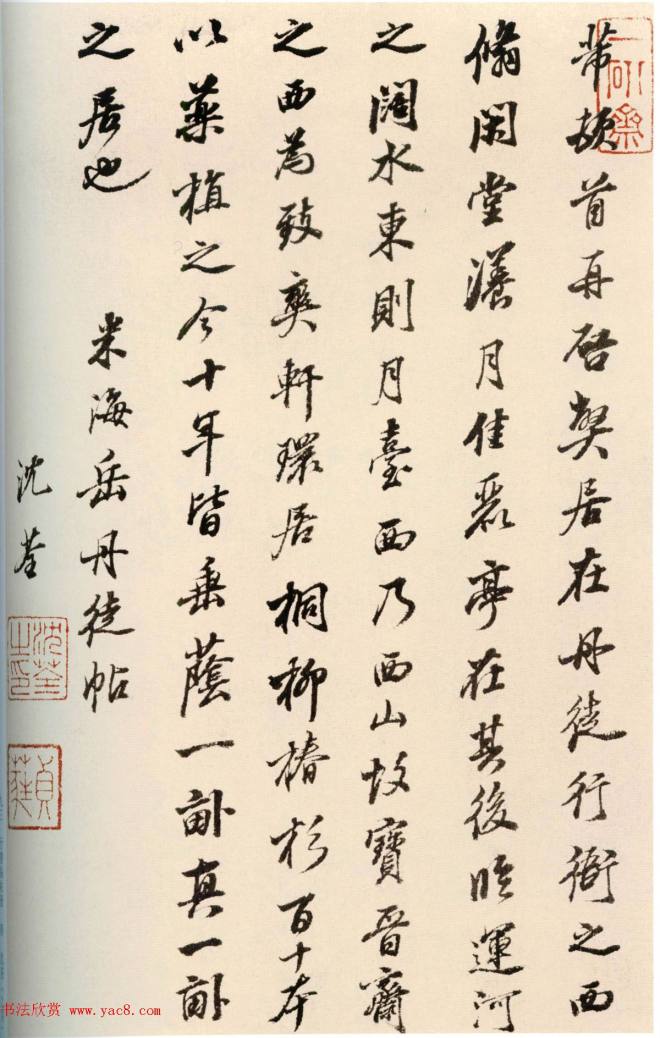 一研齋
芾頓首再啓弊居在丹徒行衙之西
翛閑堂漾月佳麗亭在其後臨運河
之闊水東則月臺西乃西山故寶晉齋
之西為致爽軒環居桐柳椿杉百十本
以藥植之今十年皆垂蔭一畝真一畝
之居也
米海岳丹徒帖
沈荃
沈荃之印
貞蕤
书法欣赏 www.yac8.com